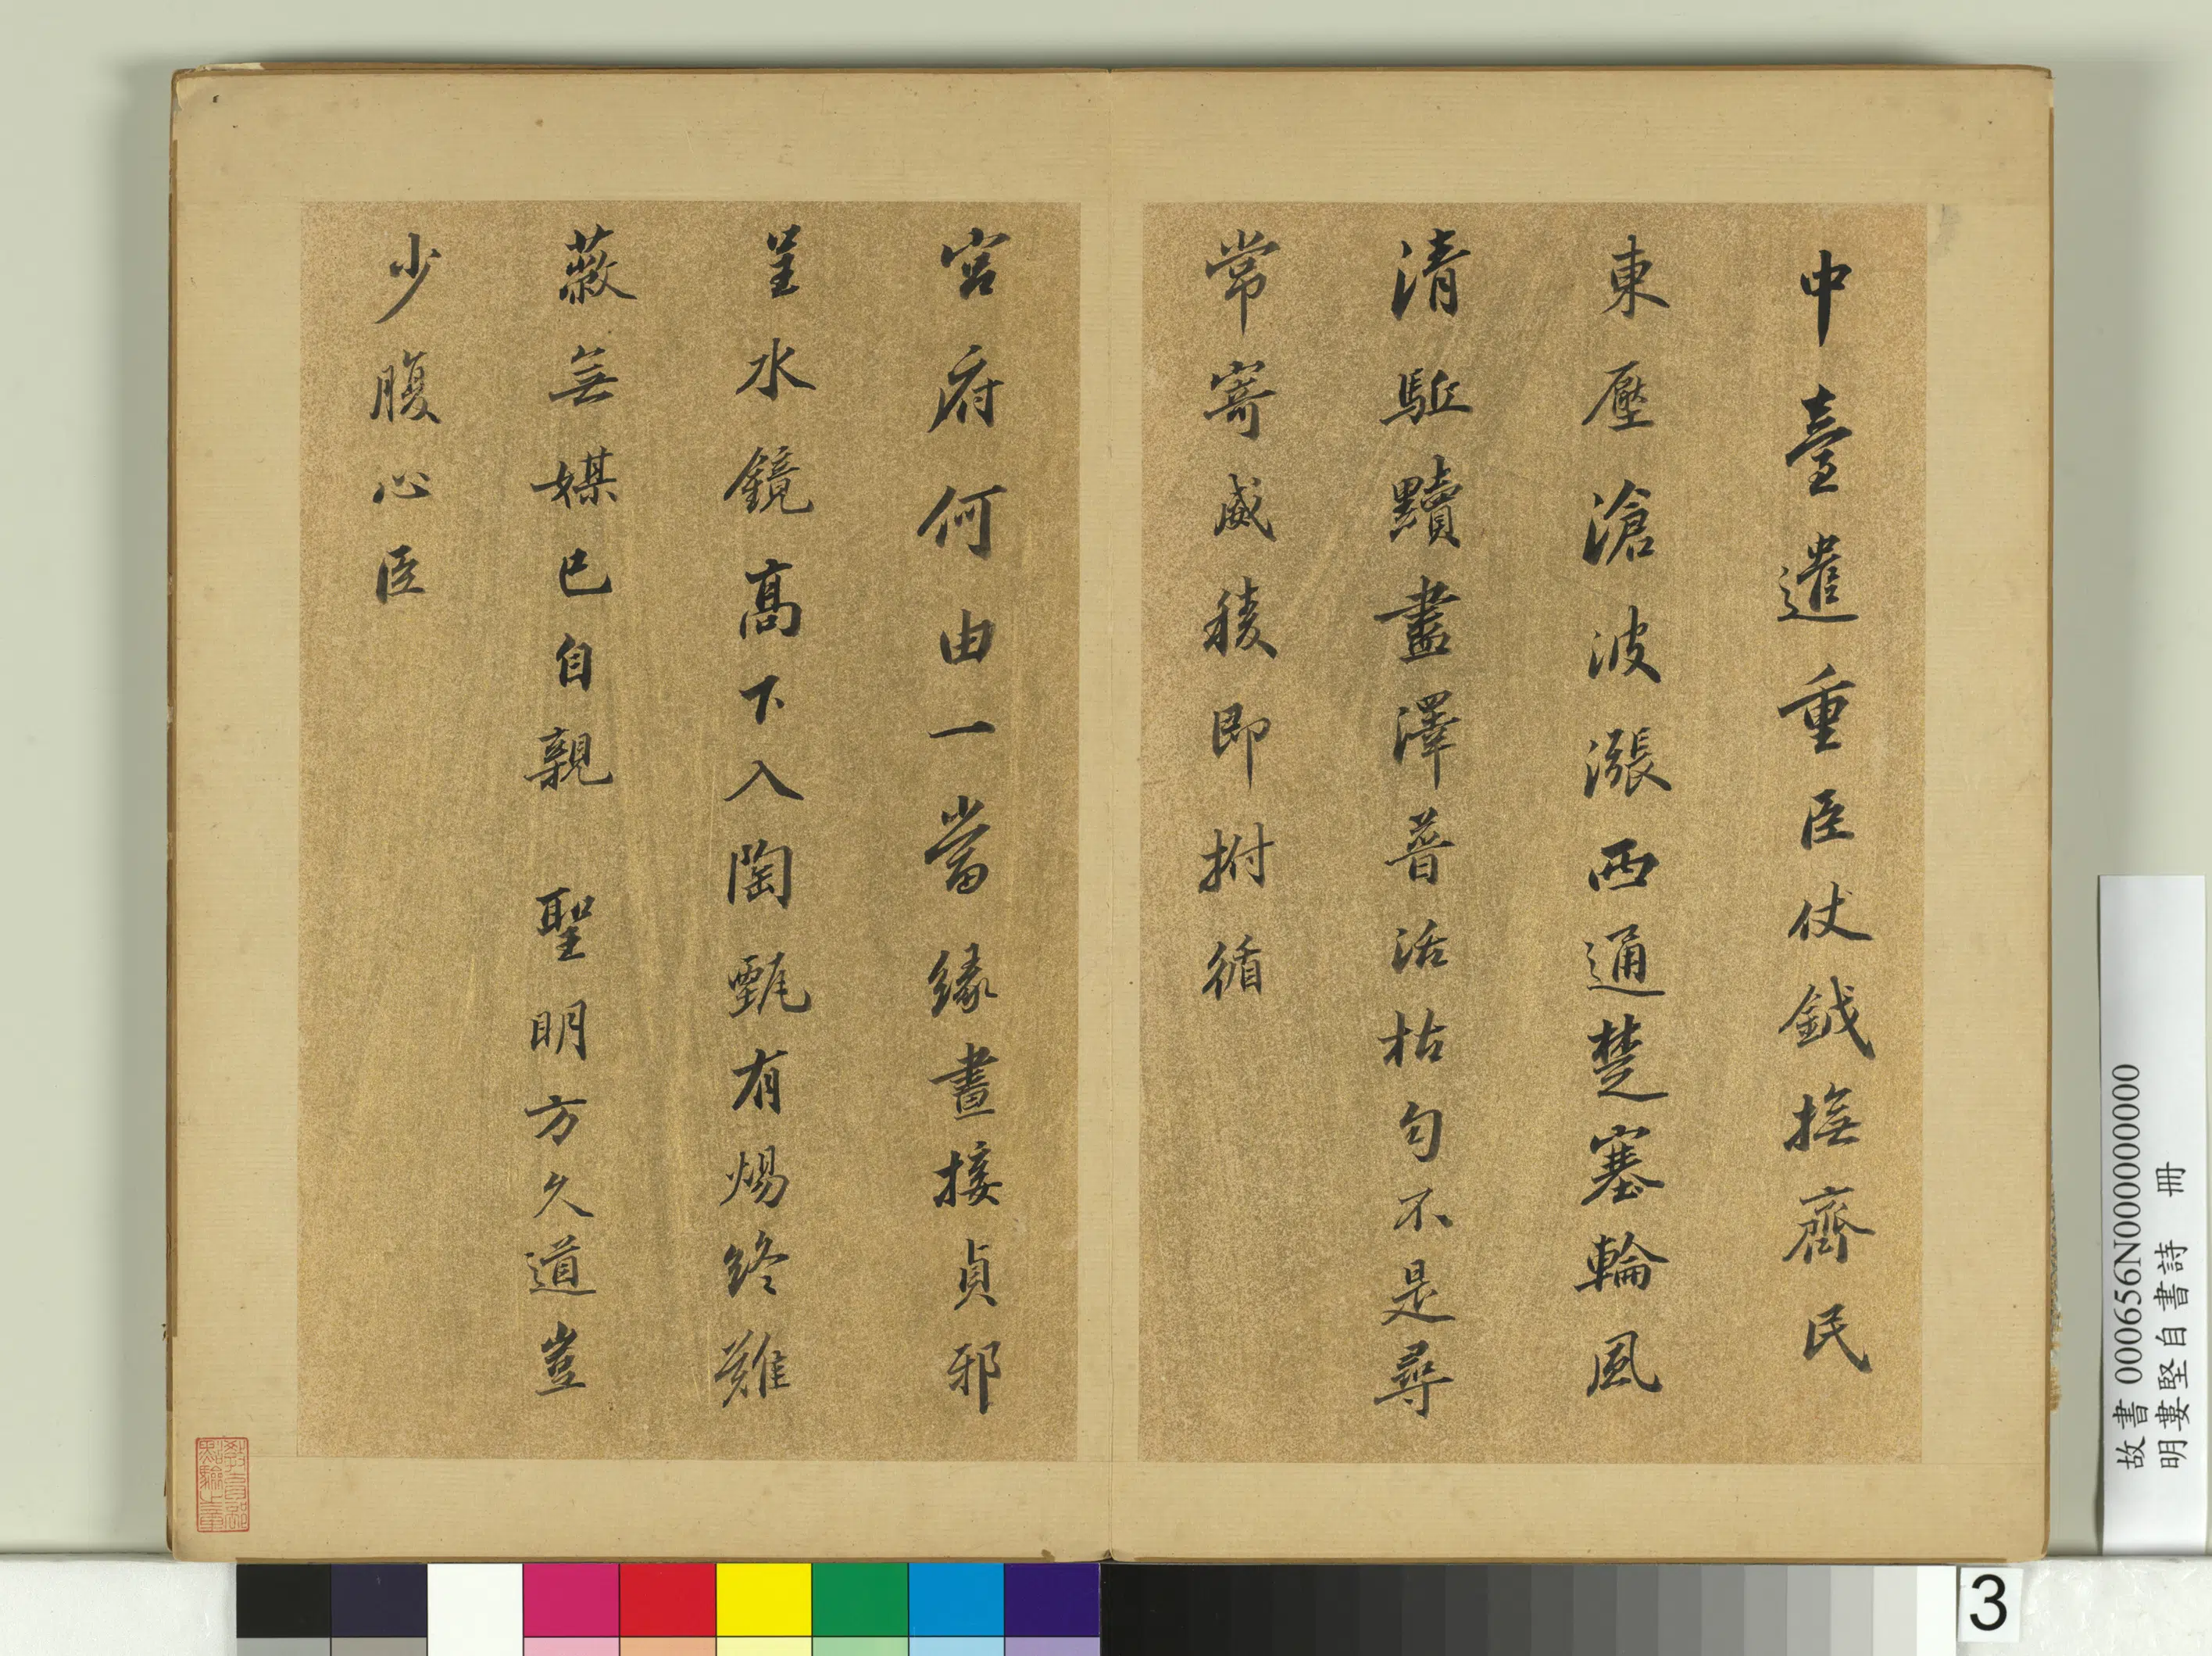 中臺遣重臣仗鉞撫齊民
東壓滄波漲西通楚塞輪風
清駈黷盡澤普活枯勻不是尋
常寄威稜即拊循
宮府何由一當緣晝接貞邪
呈水鏡高下入陶甄有煬終難
蔽無媒已自親 聖明方久道豈
少腹心臣
故書 000656N000000000
明婁堅自書詩 冊
3